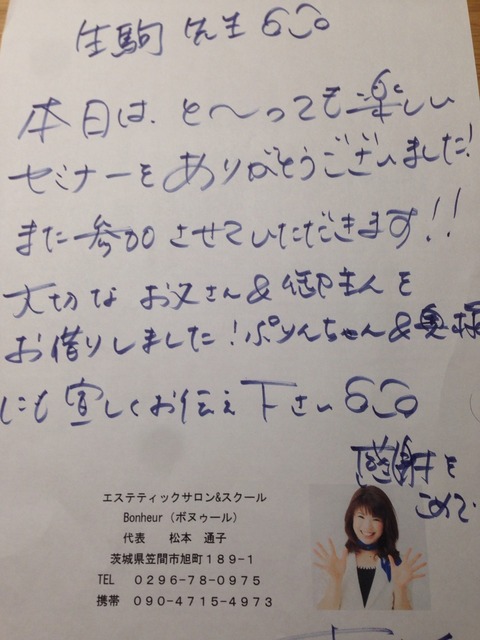 生駒先生
本日は、と〜っても楽しい
セミナーをありがとうございました!
また参加させていただきます!!
大切なお父さん&御主人を
お借りしました!ぷりんちゃん&奥様
にも宜しくお伝え下さい
感謝を
こめて
エステティックサロン&スクール
Bonheur(ボヌゥール)
代表 松本 通子
茨城県笠間市旭町189-1
TEL 0296-78-0975
携帯 090-4715-4973